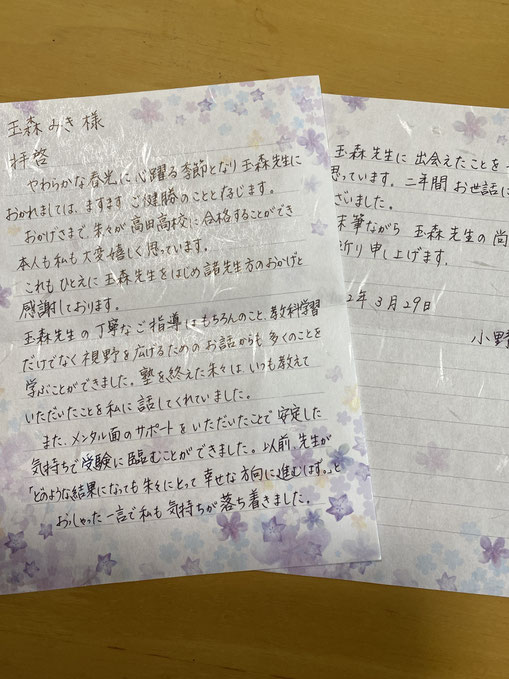 玉森みき様
拝啓
やわらかな春光に心躍る季節となり玉森先生に
おかれましては、ますますご健勝のことと存じます。
おかげさまで朱々が高田高校に合格することができ
本人も私も大変嬉しく思っています。
これもひとえに玉森先生をはじめ諸先生方のおかげと
感謝しております。
玉森先生の丁寧なご指導はもちろんのこと、教科学習
だけでなく視野を広げるためのお話からも多くのことを
学ぶことができました。塾を終えた朱々はいつも教えて
いただいたことを私に話してくれていました。
また、メンタル面のサポートをいただいたことで安定した
気持ちで受験に臨むことができました。以前、先生が
「どのような結果になっても朱々にとって幸せな方向に進むはず。」と
おっしゃった一言で私も気持ちが落ち着きました。
玉森先生に出会えたことを
思っています。二年間お世話に
ざいました。
末筆ながら玉森先生の尚
祈り申し上げます。
2年3月29日
小野